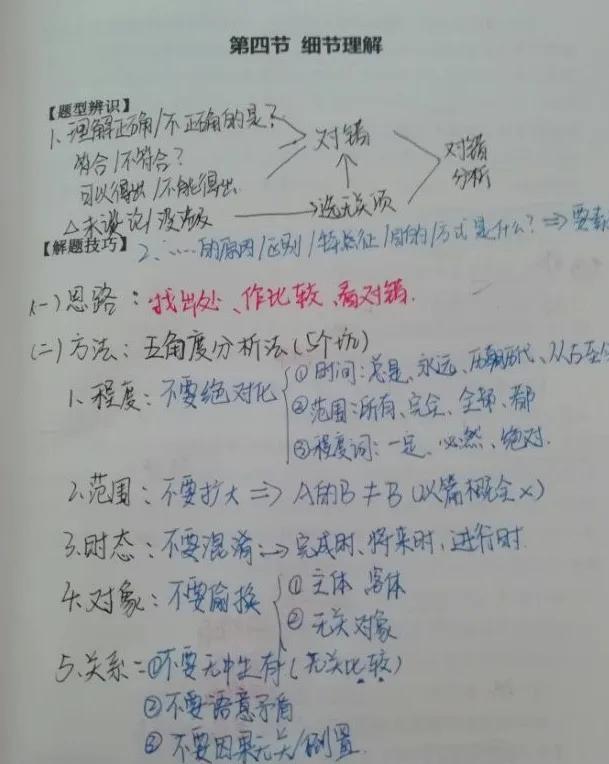 第四节 细节理解
【题型辨识】
1、理解正确/不正确的是?
符合/不符合?
可以得出/不能得出.
△未谈论/没涉及
→选无关项
对错
对错
分析
【解题技巧】
2、……的原因/区别/特点征/目的/方式是什么?⇒要素
(一)思路:找出处、作比较、看对错.
(二)方法:五角度分析法(5个坑)
1、程度:不要绝对化
①时间:总是、永远、历朝历代、从古至今
②范围:所有、完全、全部、都
③程度词:一定、必然、绝对.
2、范围:不要扩大⇒A的B≠B(以偏概全×)
3、时态:不要混淆⇒完成时、将来时、进行时.
4、对象:不要偷换
①主体、客体
②无关对象
5、关系=①不要无中生有(无关比较)
②不要语意矛盾
③不要因果无关/倒置.